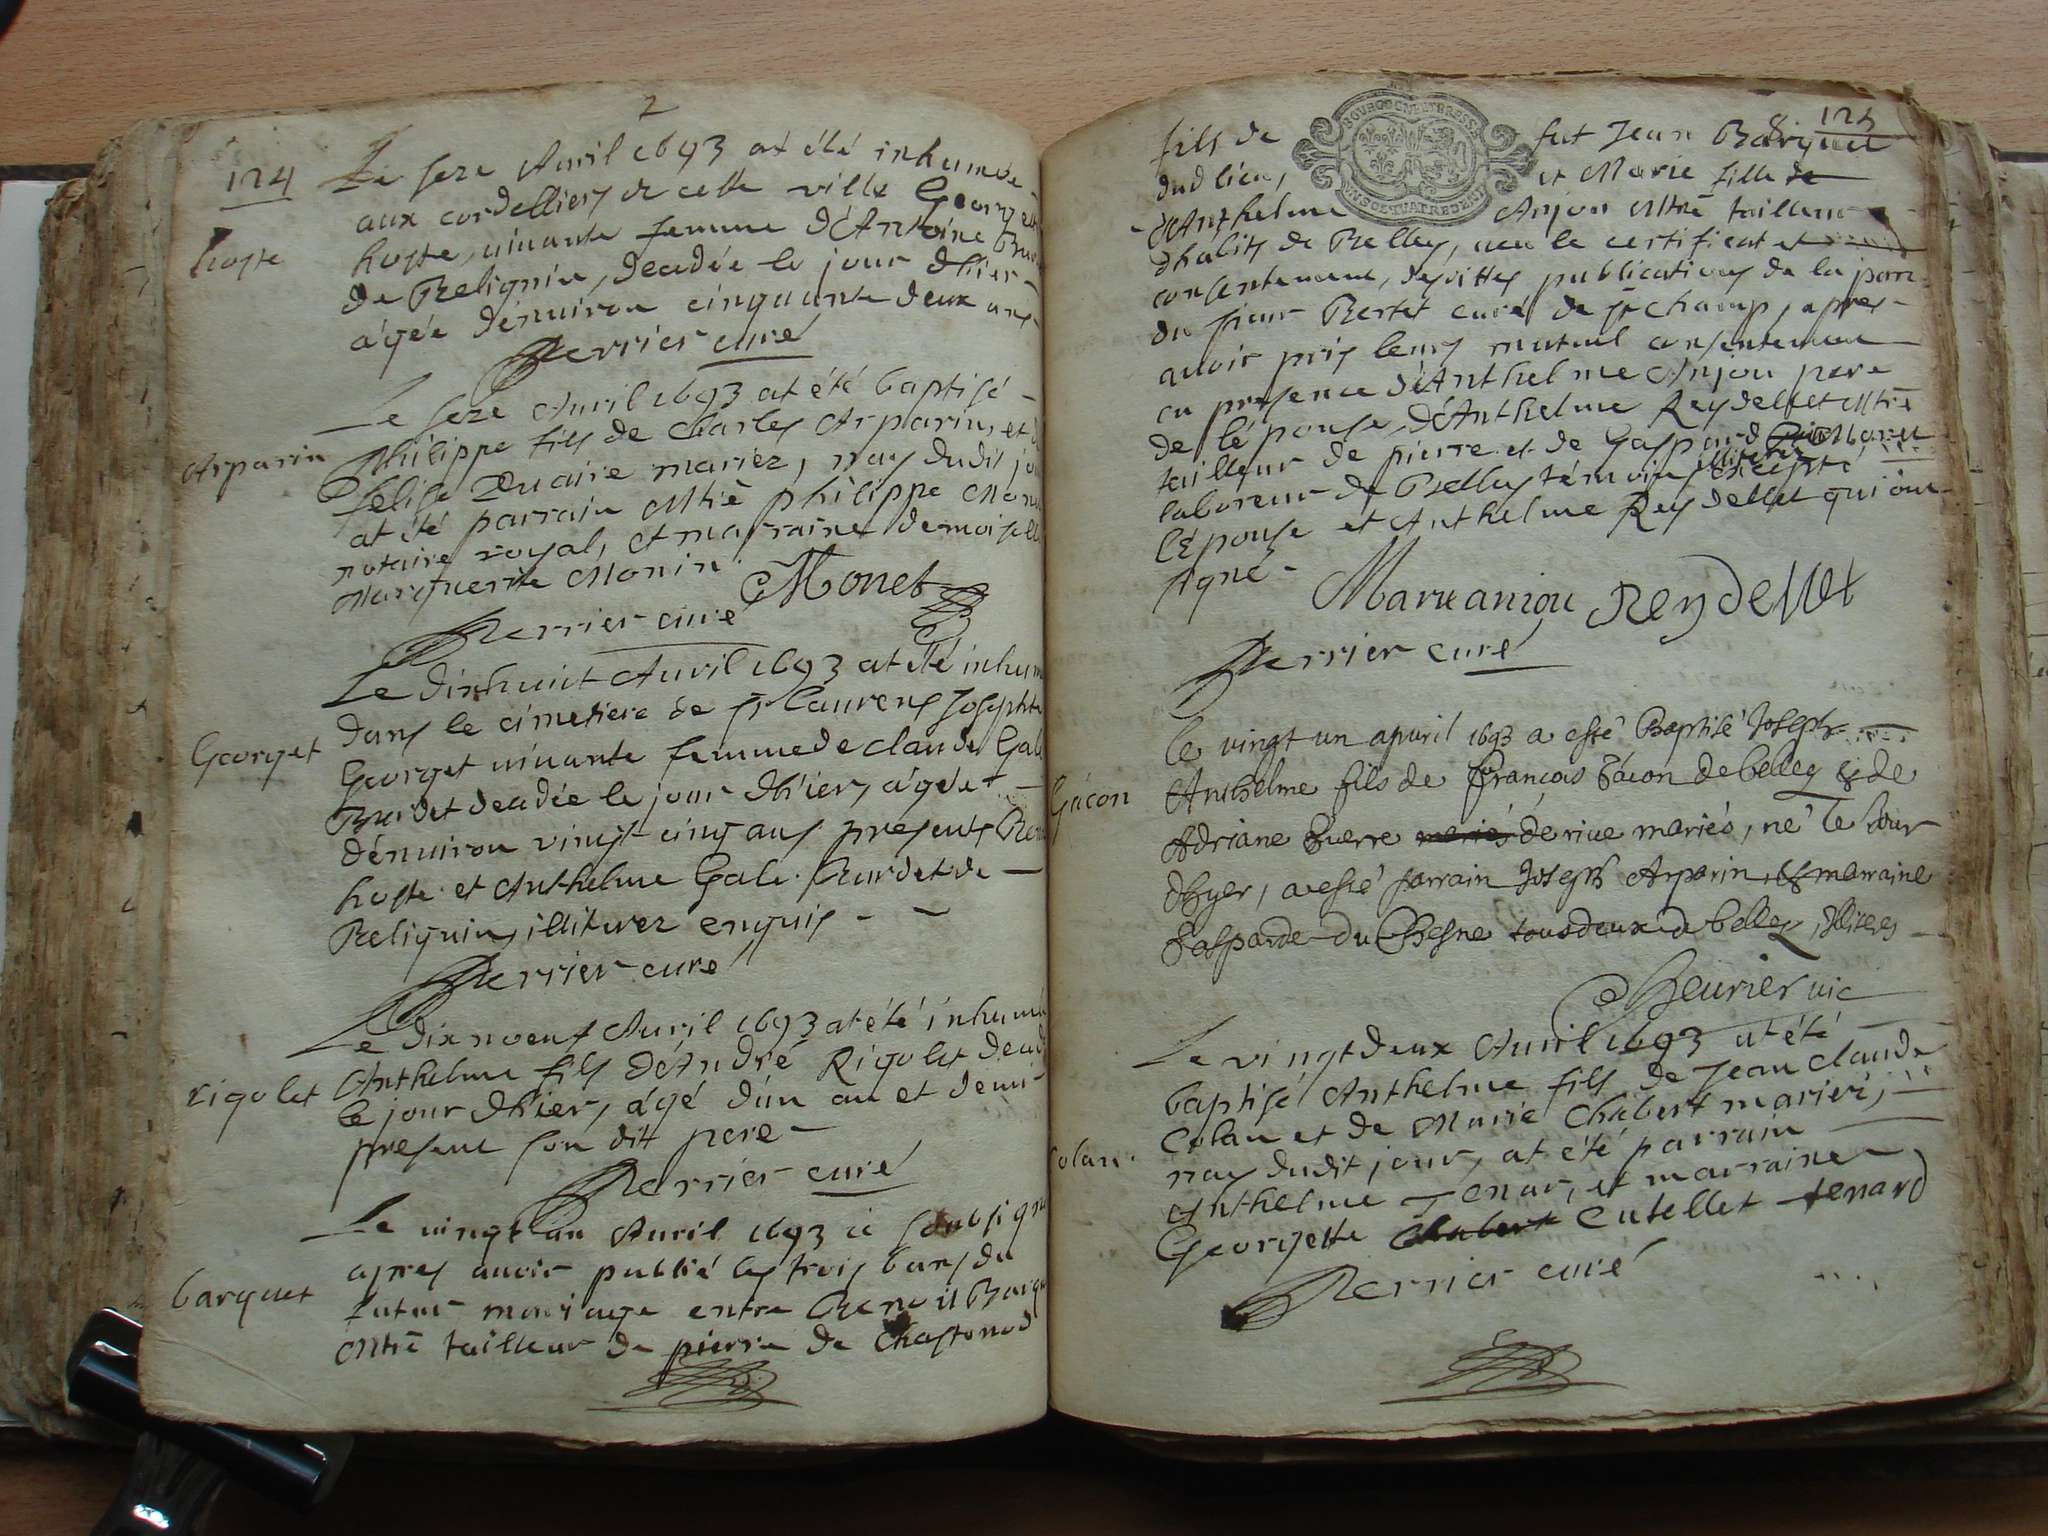 2
124
Le seze Avril 1693 at été inhumée
aux cordelliers de cette ville Georgett
hoste
hoste, vivante femme d'Antoine
de Relignin, decedée le jour d'hier
agée d'environ cinquante deux ans
Perrier curé
Le seze Avril 1693 at été baptisé
Arparin
Philippe fils de Charles Arparin, et
felise mariez, nay dudit jou
at été parrain Mtre philippe Mone
notaire royal, et marraine demoiselle
Marguerite Monin
Monet
Perrier curé
Le dixhuit Avril 1693 at été inhum
dans le cimetiere de st Laurens Josephte
Georget
Georget vivante femme de claude Gal
Burdet decedée le jour d'hier, agée
d'environ vingt cinq ans presents
hoste et Anthelme Gale Burdet de
Relignin, illiterez enquis
Perrier curé
Le dixnoeuf Avril 1693 at été inhumé
rigolet
Anthelme fils d'André Rigolet deced
le jour d'hier, agé d'un an et demi
present son dit pere
Perrier curé
Le vingt un Avril 1693 ie soubsigné
apres avoir publié les trois bans du
barquet
futur mariage entre Benoit Barqu
Mtre tailleur de pierre de Chastonod
125
fils de fut Jean Barquet
dud lieu, et Marie fille de
d'Anthelme Anjou Mtre tailleur
d'habits de Belley, veu le certificat et
consentement, desdittes publications de la part
du sieur Bertet curé de st champ, apres
avoir pris leurs mutuel consentement
en presence d'Anthelme Anjou pere
de l'épouse, d'Anthelme Reydellet Mtre
tailleur de pierre et de Gaspard
laboreur de Belley témoins illiterez excepté
l'épouse et Anthelme Reydellet qui ont
signé
Marie aniou Reydellet
Perrier curé
le vingt un apvril 1693 a esté Baptisé Joseph
Gacon
Anthelme fils de François Gacon de belley & de
Adriane Guerre mariés de rive mariés, né le Jour
d'hyer, a esté parrain Joseph Arparin, & marraine
Gasparde du Chesne tous deux de belley, illiterés
Beurier vic
Le vingtdeux Avril 1693 at été
baptisé Anthelme fils de Jean claude
Colan et de Marie Chabert mariéz,
Colan
nay dudit jour, at été parrain
Anthelme Tenar, et marraine
Georgette Chabert Cutellet tenard
Perrier curé